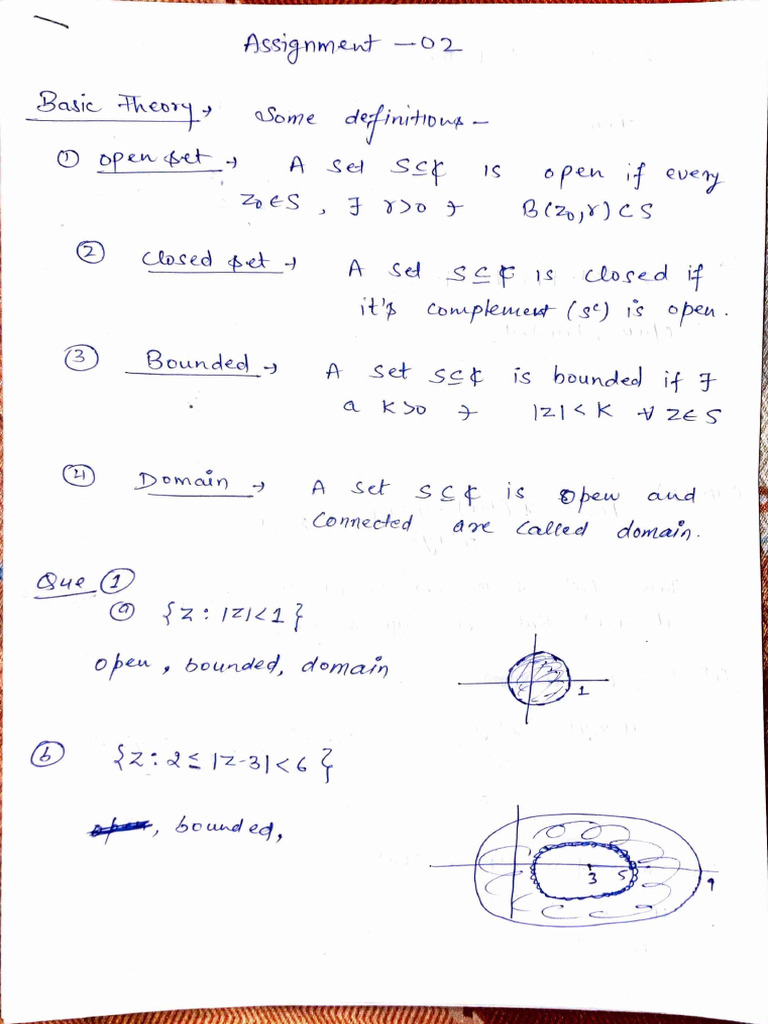 Assignment - 02
Basic Theory → Some definitions -
① open set → A set S⊆ℂ is open if every
z₀∈S, ∃ r>0 ∋ B(z₀,r)⊂S
② Closed set → A set S⊆ℂ is closed if
it's complement (Sᶜ) is open.
③ Bounded → A set S⊆ℂ is bounded if ∃
a K>0 ∋ |z|<K ∀ z∈S
④ Domain → A set S⊆ℂ is open and
Connected are called domain.
Que ①
ⓐ {z : |z|<1}
open, bounded, domain
1
ⓑ {z : 2 ≤ |z-3| < 6}
open, bounded,
3 5 9